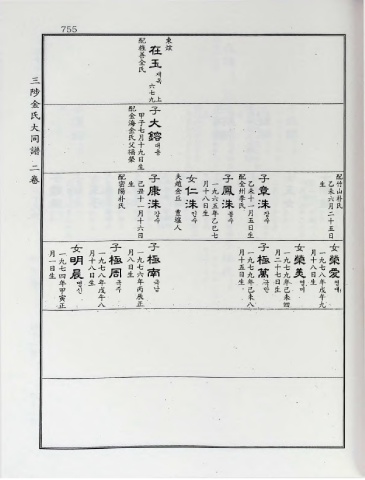 755
三陟金氏大同譜 二卷
在玉 재옥 六七九上
子大鎔 대용
甲子七月十九日生
配金海金氏父福榮
配竹山朴氏
乙未六月二十五日
生
子章洙 장수
乙未十一月五日生
配全州李氏
子鳳洙 봉수
一九六五年乙巳七
月十八日生
女仁洙 인수
夫趙金丘 豊壤人
子康洙 강수
己丑十一月十六日
生
配密陽朴氏
女榮愛 영애
一九七八年戊午九
月十八日生
女榮美 영미
一九七九年己未四
月二十七日生
子極萬 극만
一九七九年己未八
月十五日生
子極南 극남
一九七六年丙辰正
月八日生
子極周 극주
一九七八年戊午八
月十八日生
女明晨 명신
一九七四年甲寅正
月一日生